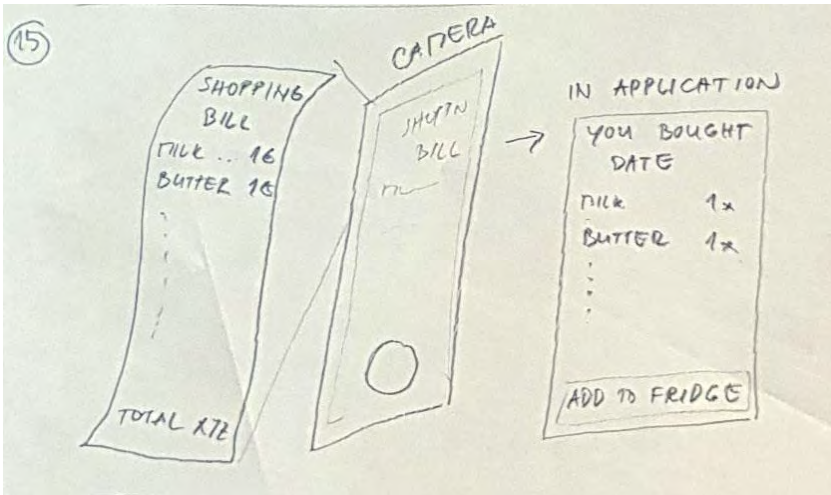 15
SHOPPING
BILL
MILK .. 16
BUTTER 16
TOTAL XYZ
CAMERA
BILL
IN APPLICATION
YOU BOUGHT
DATE
MILK 1x
BUTTER 1x
ADD TO FRIDGE